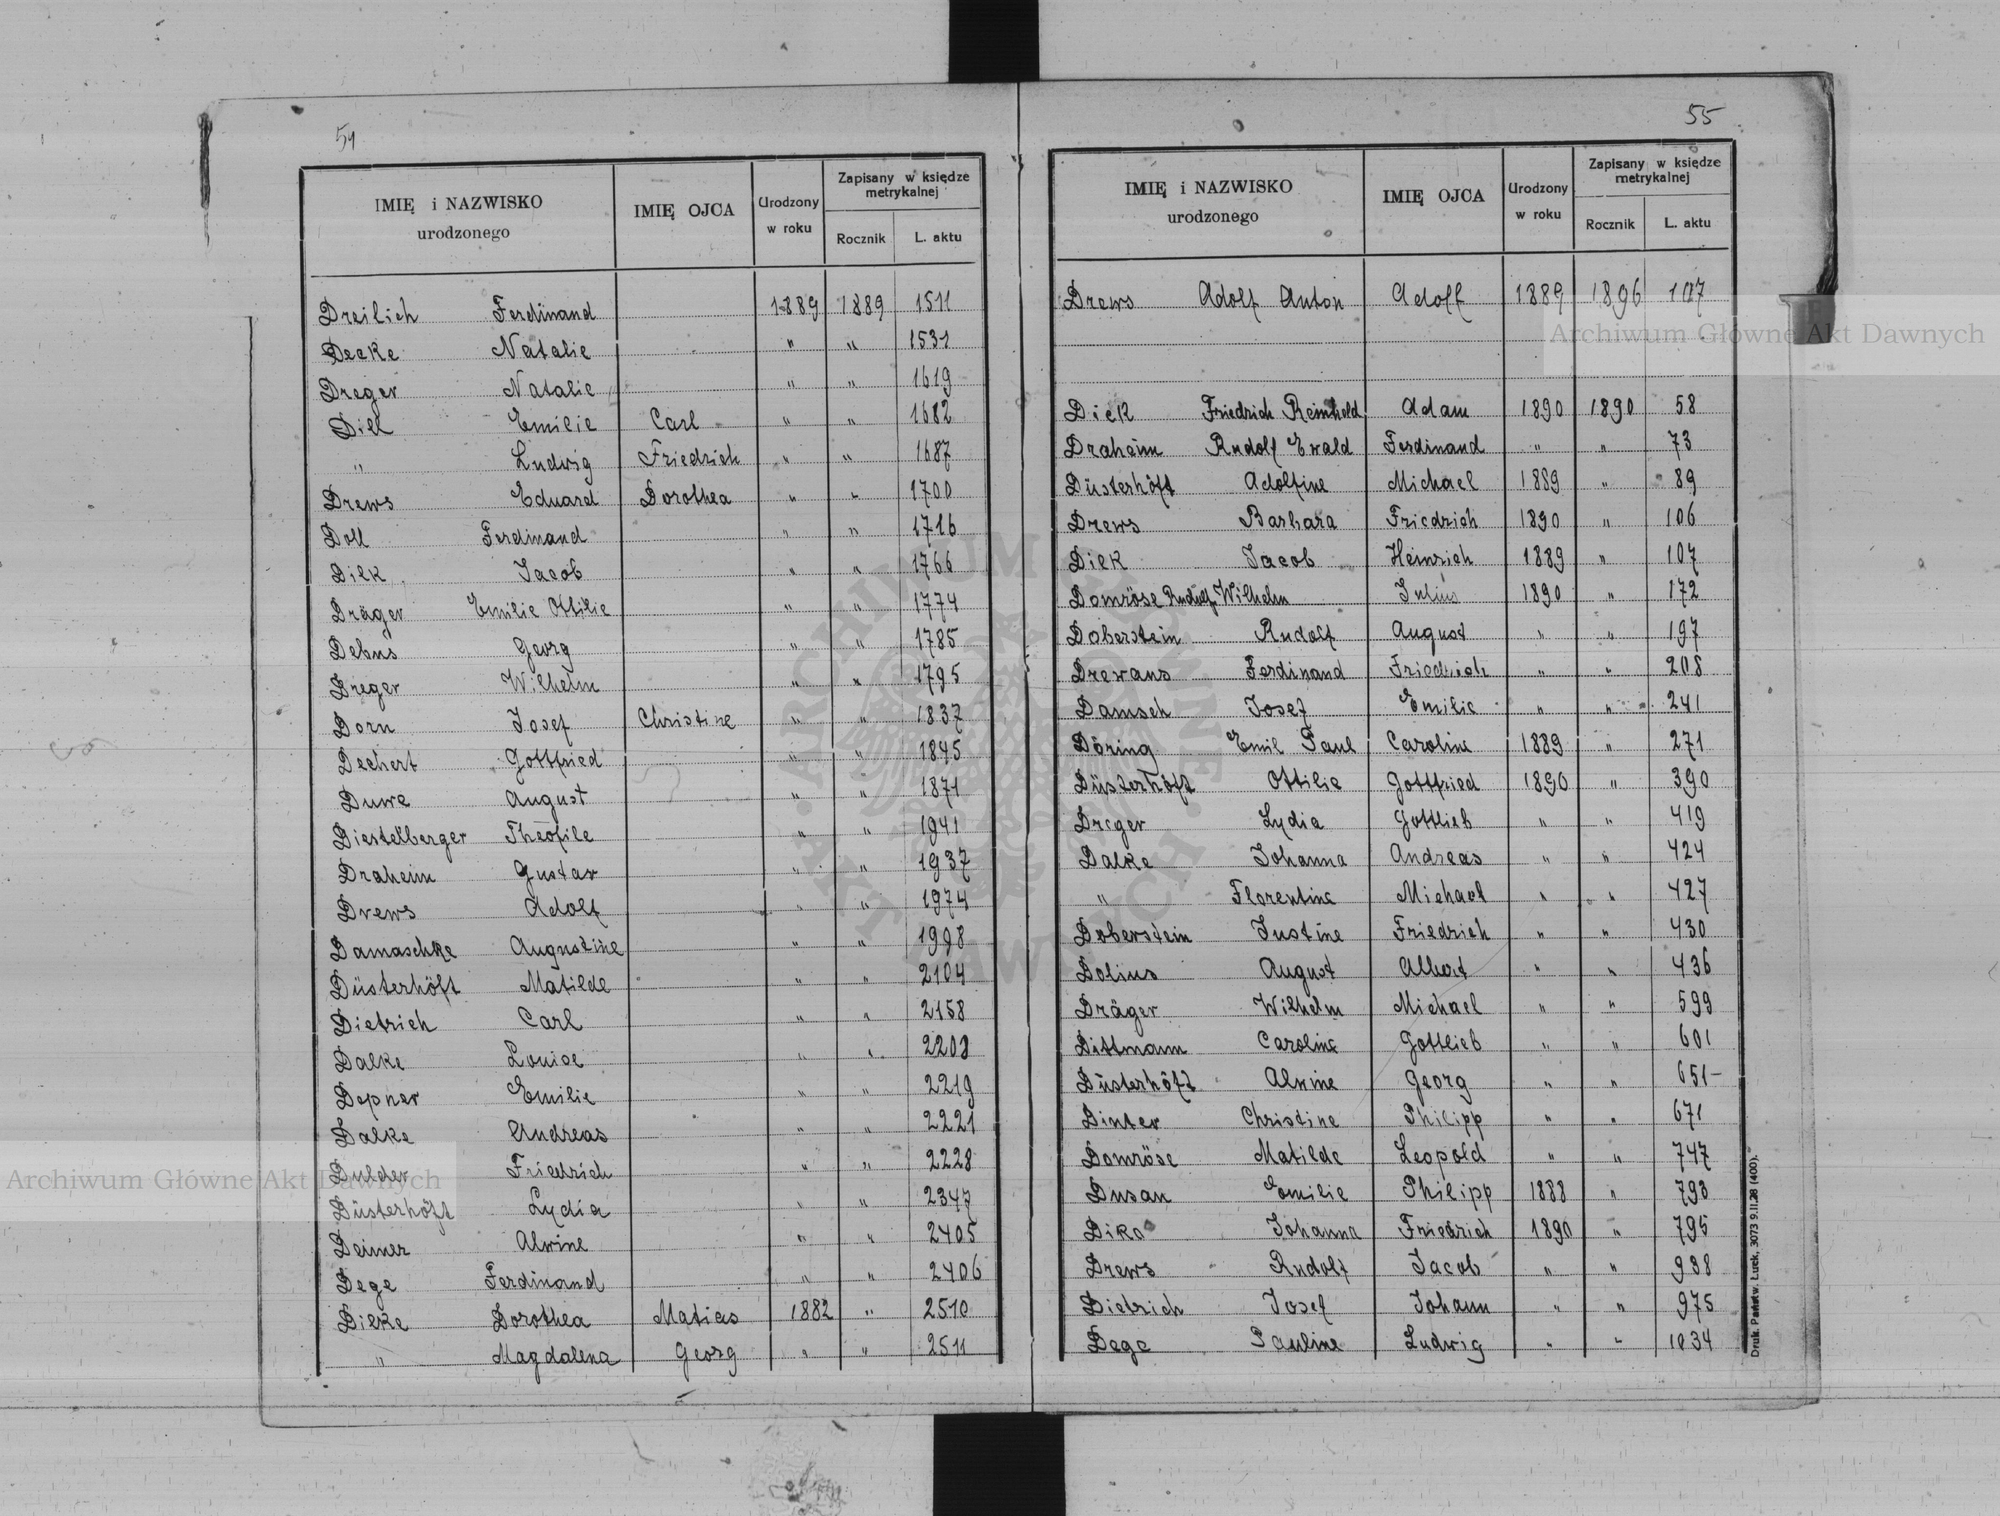 54
IMIĘ i NAZWISKO urodzonego IMIĘ OJCA Urodzony w roku Zapisany w księdze metrykalnej Rocznik L. aktu
Dreilich Ferdinand 1889 1889 1511
Decke Natalie " " 1531
Dreger Natalie " " 1619
Diel Emilie Carl " " 1682
" Ludwig Friedrich " " 1687
Drews Eduard Dorothea " " 1700
Doll Ferdinand " " 1716
Dilk Jacob " " 1766
Dräger Emilie Ottilie " " 1774
Debus Georg " " 1785
Dreger Wilhelm " " 1795
Dorn Josef Christine " " 1837
Dechert Gottfried " " 1845
Duwe August " " 1871
Diestelberger Theofile " " 1941
Draheim Gustav " " 1937
Drews Adolf " " 1974
Damaschke Augustine " " 1998
Düsterhöft Matilde " " 2104
Dietrich Carl " " 2158
Dalke Louise " " 2208
Depner Emilie " " 2219
Dalke Andreas " " 2221
Dulder Friedrich " " 2228
Düsterhöft Lydia " " 2347
Deimer Alwine " " 2405
Dege Ferdinand " " 2406
Dilke Dorothea Matias 1882 " 2510
" Magdalena Georg " " 2511
55
IMIĘ i NAZWISKO urodzonego IMIĘ OJCA Urodzony w roku Zapisany w księdze metrykalnej Rocznik L. aktu
Drews Adolf Anton Adolf 1889 1896 107
Dick Friedrich Reinhold Adam 1890 1890 58
Draheim Rudolf Ewald Ferdinand " " 73
Düsterhöft Adolfine Michael 1889 " 89
Drews Barbara Friedrich 1890 " 106
Dilk Jacob Heinrich 1889 " 107
Domröse Rudolf Wilhelm Julius 1890 " 172
Doberstein Rudolf August " " 197
Drewans Ferdinand Friedrich " " 208
Damsch Josef Emilie " " 241
Döring Emil Paul Caroline 1889 " 271
Düsterhöft Ottilie Gottfried 1890 " 390
Dreger Lydia Gottlieb " " 419
Dalke Johanna Andreas " " 424
" Florentine Michael " " 427
Doberstein Justine Friedrich " " 430
Dolius August Albert " " 436
Dräger Wilhelm Michael " " 599
Dittmann Caroline Gottlieb " " 601
Düsterhöft Alwine Georg " " 651
Dinter Christine Philipp " " 671
Domröse Matilde Leopold " " 747
Dusan Emilie Philipp 1888 " 793
Dike Johanna Friedrich 1890 " 795
Drews Rudolf Jacob " " 938
Dietrich Josef Johann " " 975
Dege Pauline Ludwig " " 1034
Druk. Państw. Łuck, 3073 9.II.28 (400).
Archiwum Główne Akt Dawnych
Archiwum Główne Akt Dawnych
ARCHIWUM GŁÓWNE
AKT DAWNYCH